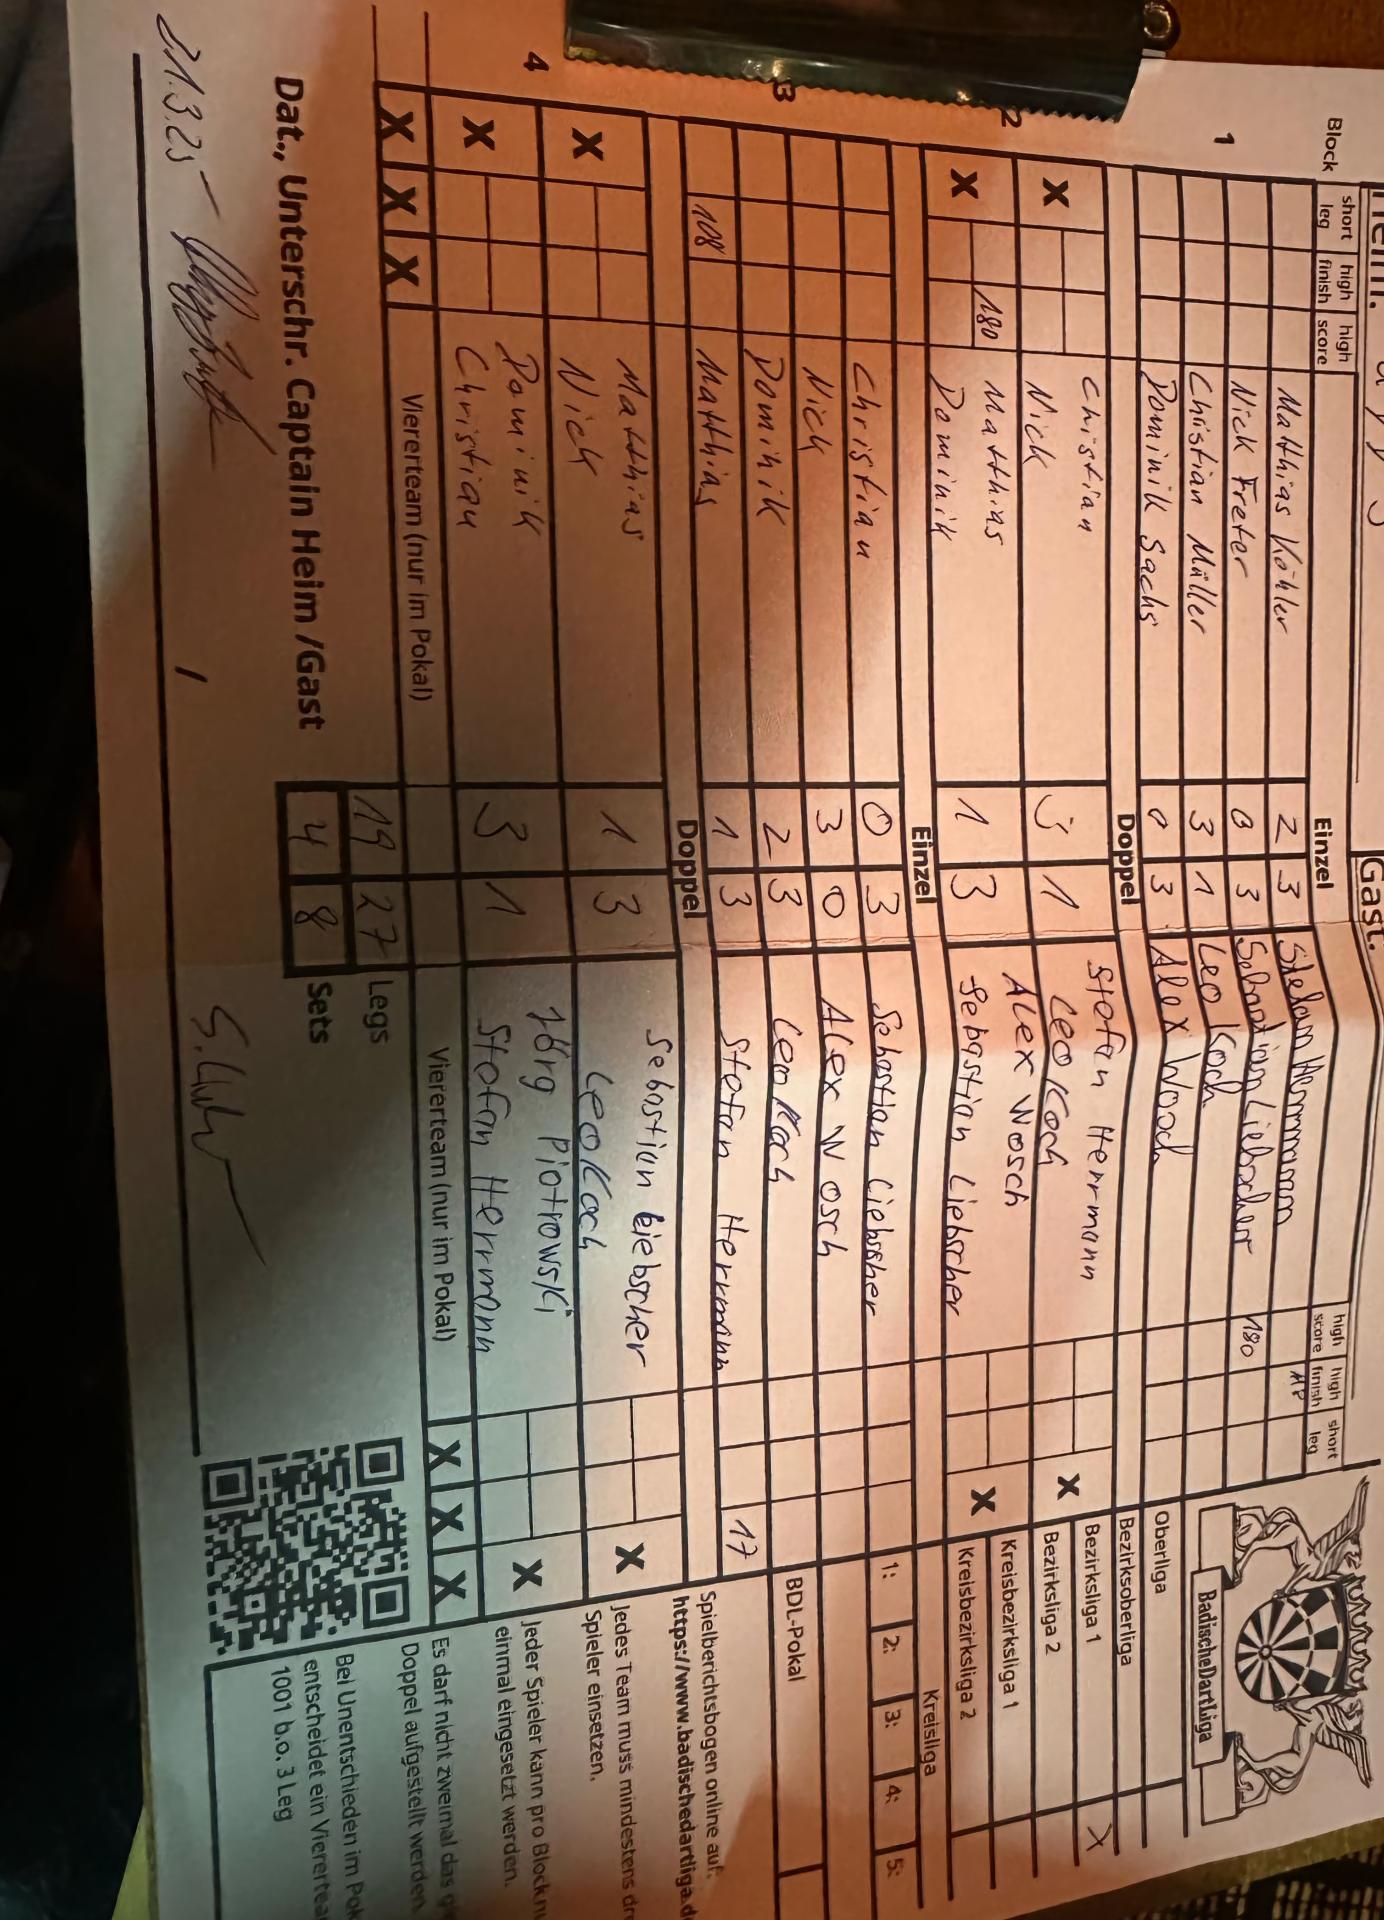 Gast.
Block short leg high finish high score Einzel high score high finish short leg
1 Matthias Köhler 2 3 Stefan Herrmann
Nick Freter 0 3 Sebastian Liebscher 180
Christian Müller 3 1 Leo Koch
Dominik Sachs 0 3 Alex Wosch
Doppel
2 X Christian 3 1 Stefan Herrmann X
Nick Leo Koch
X 180 Matthias 1 3 Alex Wosch X
Dominik Sebastian Liebscher
Einzel
3 Christian 0 3 Sebastian Liebscher
Nick 3 0 Alex Wosch
Dominik 2 3 Leo Koch
108 Matthias 1 3 Stefan Herrmann 17
Doppel
4 X Matthias 1 3 Sebastian Liebscher X
Nick Leo Koch
X Dominik 3 1 Jörg Piotrowski X
Christian Stefan Herrmann
X X X Viererteam (nur im Pokal) Viererteam (nur im Pokal) X X X
19 27 Legs
4 8 Sets
Dat., Unterschr. Captain Heim /Gast
21.3.25 /
BadischeDartLiga
Oberliga
Bezirksoberliga
Bezirksliga 1 X
Bezirksliga 2
Kreisbezirksliga 1
Kreisbezirksliga 2
Kreisliga
1: 2: 3: 4: 5:
BDL-Pokal
Spielberichtsbogen online auf:
https://www.badischedartliga.d
Jedes Team muss mindestens
Spieler einsetzen.
Jeder Spieler kann pro
einmal eingesetzt werden.
Es darf nicht zweimal das
Doppel aufgestellt werden.
Bei Unentschieden im
entscheidet ein
1001 b.o. 3 Leg